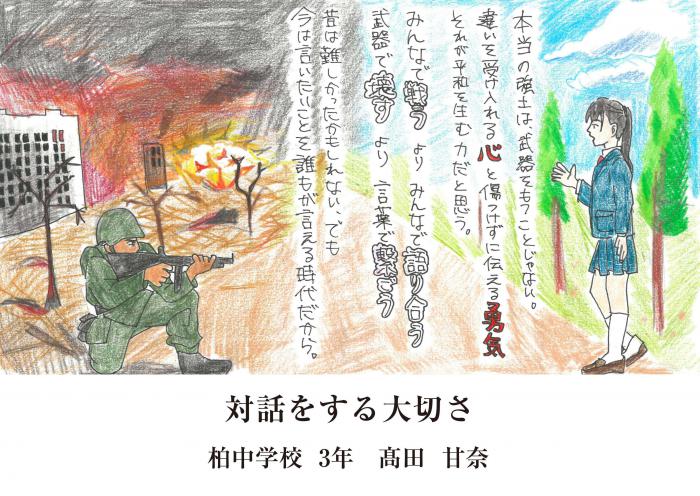 本当の強さは、武器をもつことじゃない。
違いを受け入れる心と傷つけずに伝える勇気
それが平和を生む力だと思う。
みんなで戦うよりみんなで語り合う
武器で壊すより言葉で繋ごう
昔は難しかったかもしれない、でも
今は言いたいことを誰もが言える時代だから。
対話をする大切さ
柏中学校 3年 髙田 甘奈